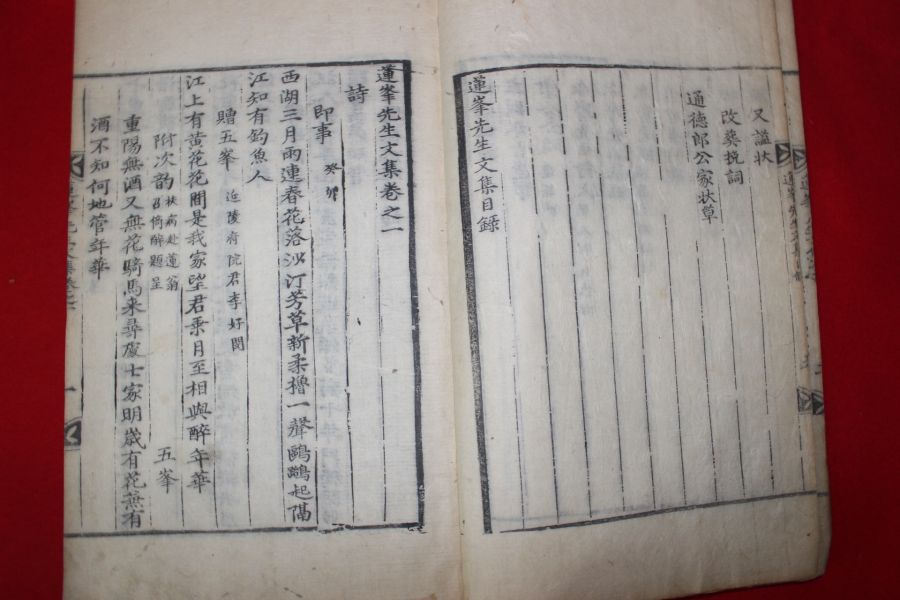 又謚狀
改葬挽詞
通德郎公家狀草
蓮峯先生文集目錄
蓮峯先生文集卷之一
詩
即事 癸卯
西湖三月雨連春花落沙汀芳草新柔櫓一聲鷗鷺起隔
江知有釣魚人
贈五峯 延陵府院君李好閔
江上有黄花花間是我家望君乘月至相與醉年華
附次韵 扶病赴蓮翁
召倚醉題呈 五峯
重陽無酒又無花騎馬来尋處士家明歲有花兼有
酒不知何地管年華